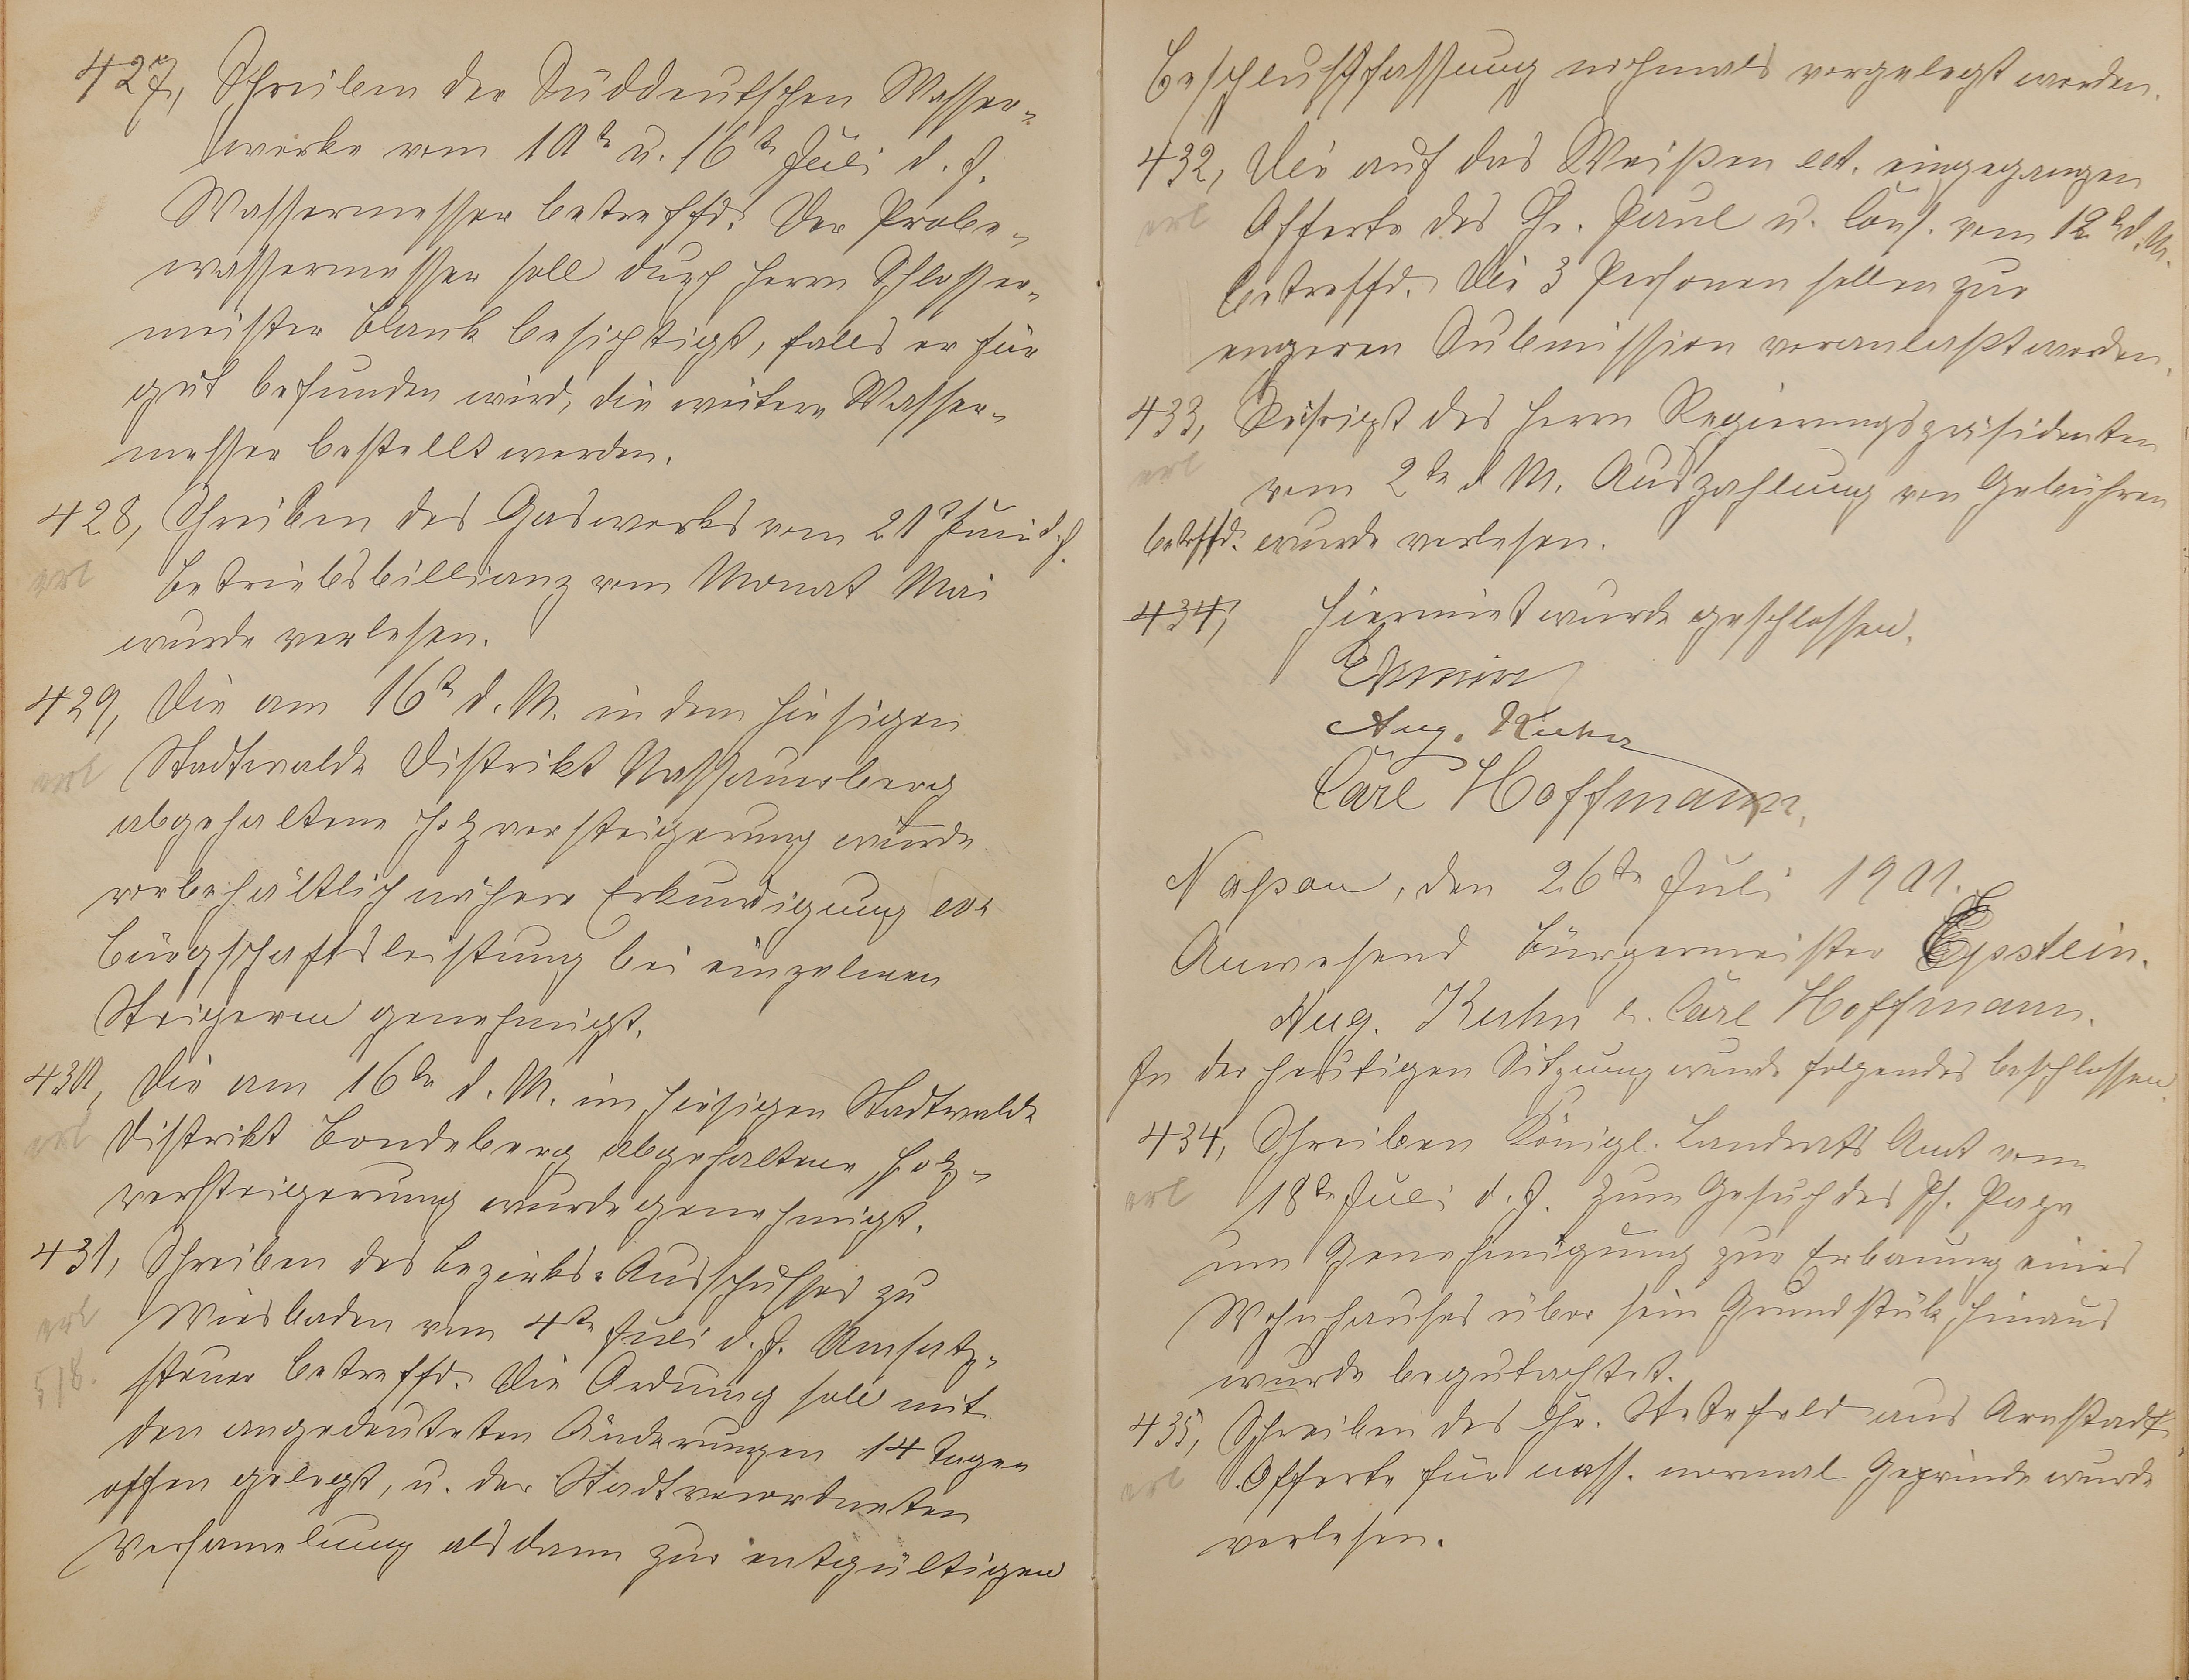 427, Schreiben der Süddeutschen Wasser-
werke vom 10te u. 16te Juli d. J.
Wassermesser betreffd. Der Probe-
wassermesser soll durch Herrn Schlosser-
meister Blank besichtigt, falls er für
gut befunden wird, die weitere Wasser-
messer bestellt werden.
428, Schreiben des Gaswerks vom 21t Juni d. J.
erl Betriebsbillianz vom Monat Mai
wurde verlesen.
429, Die am 16te d. M. in dem hiesigen
erl Stadtwalde Distrikt Nassauerberg
abgehaltene Holzversteigerung wurde
vorbehältlich nähere Erkundigung
Bürgschaftsleistung bei einzelnen
Steigeren genehmigt.
430, Die am 16te d. M. im hiesigen Stadtwalde
erl Distrikt Bondeberg abgehaltene Holz-
versteigerung wurde genehmigt.
431, Schreiben des Bezirks-Ausschusses zu
erl Wiesbaden vom 4te Juli d. J. Umsatz-
518. steuer betreffd. Die Ordnung soll mit
den angedeuteten Änderungen 14 Tagen
offen gelegt, u. der Stadtverordneten
Versamelung alsdann zur entgültigen
Beschlußfassung nochmals vorgelegt werden.
432, Die auf das Weißen ect. eingegangen
erl Offerte des Chr. Paul u. Cons. vom 12te d. M.
betreffd. Die 3 Personen sollen zur
engeren Submission veranlaßt werden.
433, des Herrn Regierungspräsidenten
erl vom 2te d M. Auszahlung von Gebühren
betrffd. wurde verlesen.
434, Hiermiet wurde geschlossen.
Aug. Kuhn
Carl Hoffmann.
Naßau, den 26te Juli 1901.
Anwesend Bürgermeister Epstein.
Aug. Kuhn u. Carl Hoffmann.
In der heutigen Sitzung wurde folgendes beschlossen
434, Schreiben Königl. Landrats Amt vom
erl 18te Juli d. J. zum Gesuch des Ph. Page
um Genehmigung zur Erbauung eines
Wohnhauses über sein Grundstük hinaus
wurde begutachtet.
435, Schreiben des Chr. Stetefeld aus Arnstadt
erl Offerte für nass. normal Gewinde wurde
verlesen.